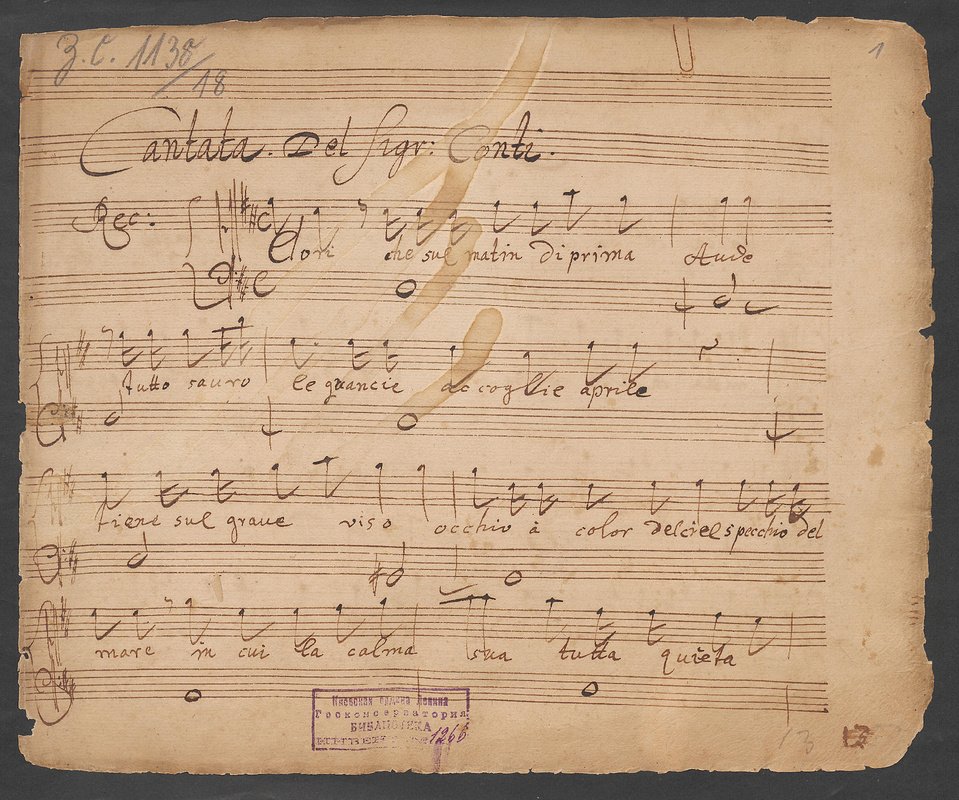 Z. C. 1138/18
1
Cantata. Del Sigr: Conti.
Rec:
Clori che sul matin di prima Aude
tutto sauro le guancie accoglie aprile
tiene sul graue viso occhio à color del ciel specchio del
mare in cui la calma sua tutta quieta
Киевская ордена Ленина
Госконсерватория
БИБЛИОТЕКА
1266
13